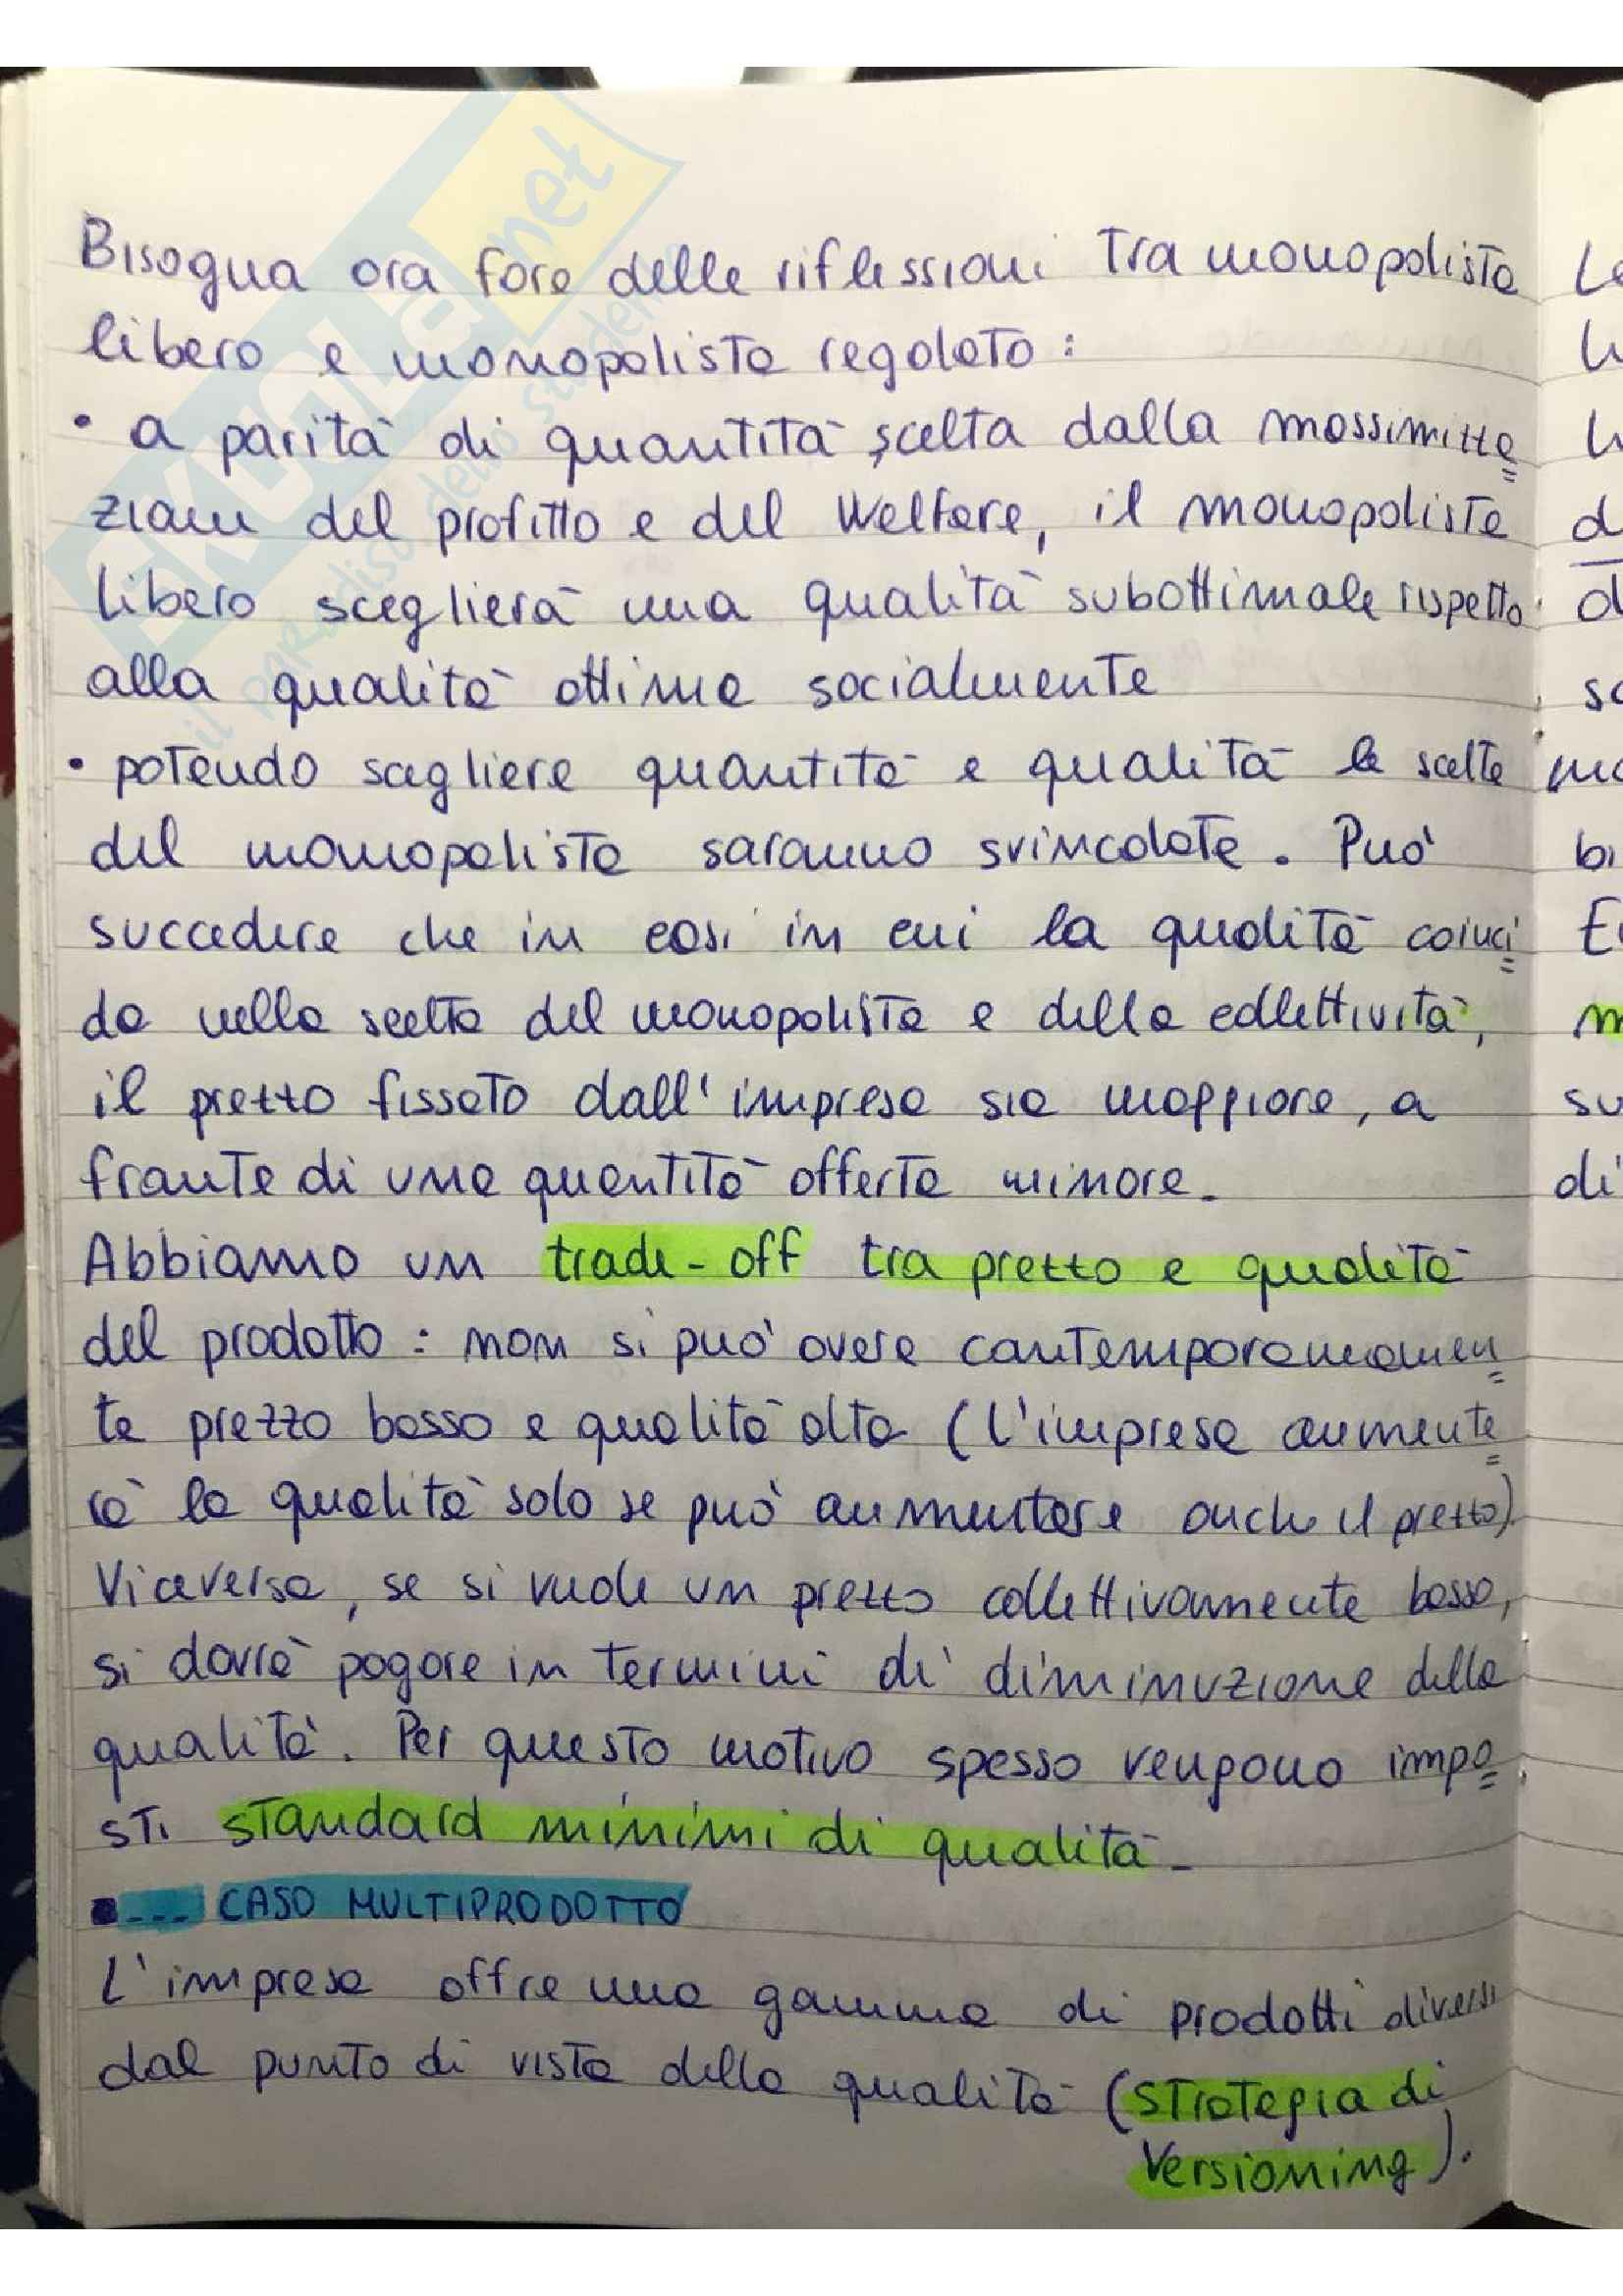 Bisogna ora fare delle riflessioni tra monopolista
libero e monopolista regolato:
• a parità di quantità scelta dalla massimizza
zioni del profitto e del Welfare, il monopolista
libero sceglierà una qualità subottimale rispetto
alla qualità ottima socialmente
• potendo scegliere quantità e qualità le scelte
del monopolista saranno svincolate. Può
succedere che in casi in cui la qualità coinci
da nella scelta del monopolista e della collettività,
il prezzo fissato dall'impresa sia maggiore, a
fronte di una quantità offerta minore.
Abbiamo un trade-off tra prezzo e qualità
del prodotto: non si può avere contemporaneamen
te prezzo basso e qualità alta (l'impresa aumente
rà la qualità solo se può aumentare anche il prezzo).
Viceversa, se si vuole un prezzo collettivamente basso,
si dovrà pagare in termini di diminuzione della
qualità. Per questo motivo spesso vengono impo
sti standard minimi di qualità.
--- CASO MULTIPRODOTTO
L'impresa offre una gamma di prodotti diversi
dal punto di vista della qualità (strategia di
Versioning).
SKUOLA.net
il paradiso dello studente